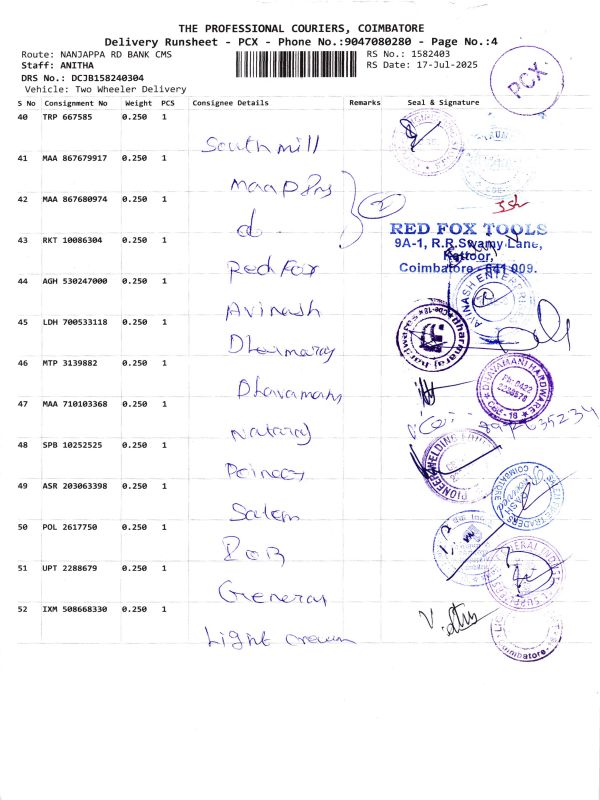 THE PROFESSIONAL COURIERS, COIMBATORE
Delivery Runsheet - PCX - Phone No.:9047080280 - Page No.:4
Route: NANJAPPA RD BANK CMS
RS No.: 1582403
Staff: ANITHA
RS Date: 17-Jul-2025
DRS No.: DCJB158240304
Vehicle: Two Wheeler Delivery
PCX
S No Consignment No Weight PCS Consignee Details Remarks Seal & Signature
40 TRP 667585 0.250 1
South mill
41 MAA 867679917 0.250 1
42 MAA 867680974 0.250 1
d
43 RKT 10086304 0.250 1
Red Fox
RED FOX TOOLS
9A-1, R.R.Swamy Lane,
Kattoor,
Coimbatore - 641 009.
44 AGH 530247000 0.250 1
Avinash
AVINASH ENTERPRISES
45 LDH 700533118 0.250 1
Dharmaraj
46 MTP 3139882 0.250 1
Dhavamany
DHAVAMANI HARDWARE
Ph: 0422
Cbe - 18
47 MAA 710103368 0.250 1
Nataraj
48 SPB 10252525 0.250 1
Pioneer
PIONEER WELDING
49 ASR 203063398 0.250 1
Salem
TRADERS
COIMBATORE
50 POL 2617750 0.250 1
BOB
51 UPT 2288679 0.250 1
General
52 IXM 508668330 0.250 1
Light crown